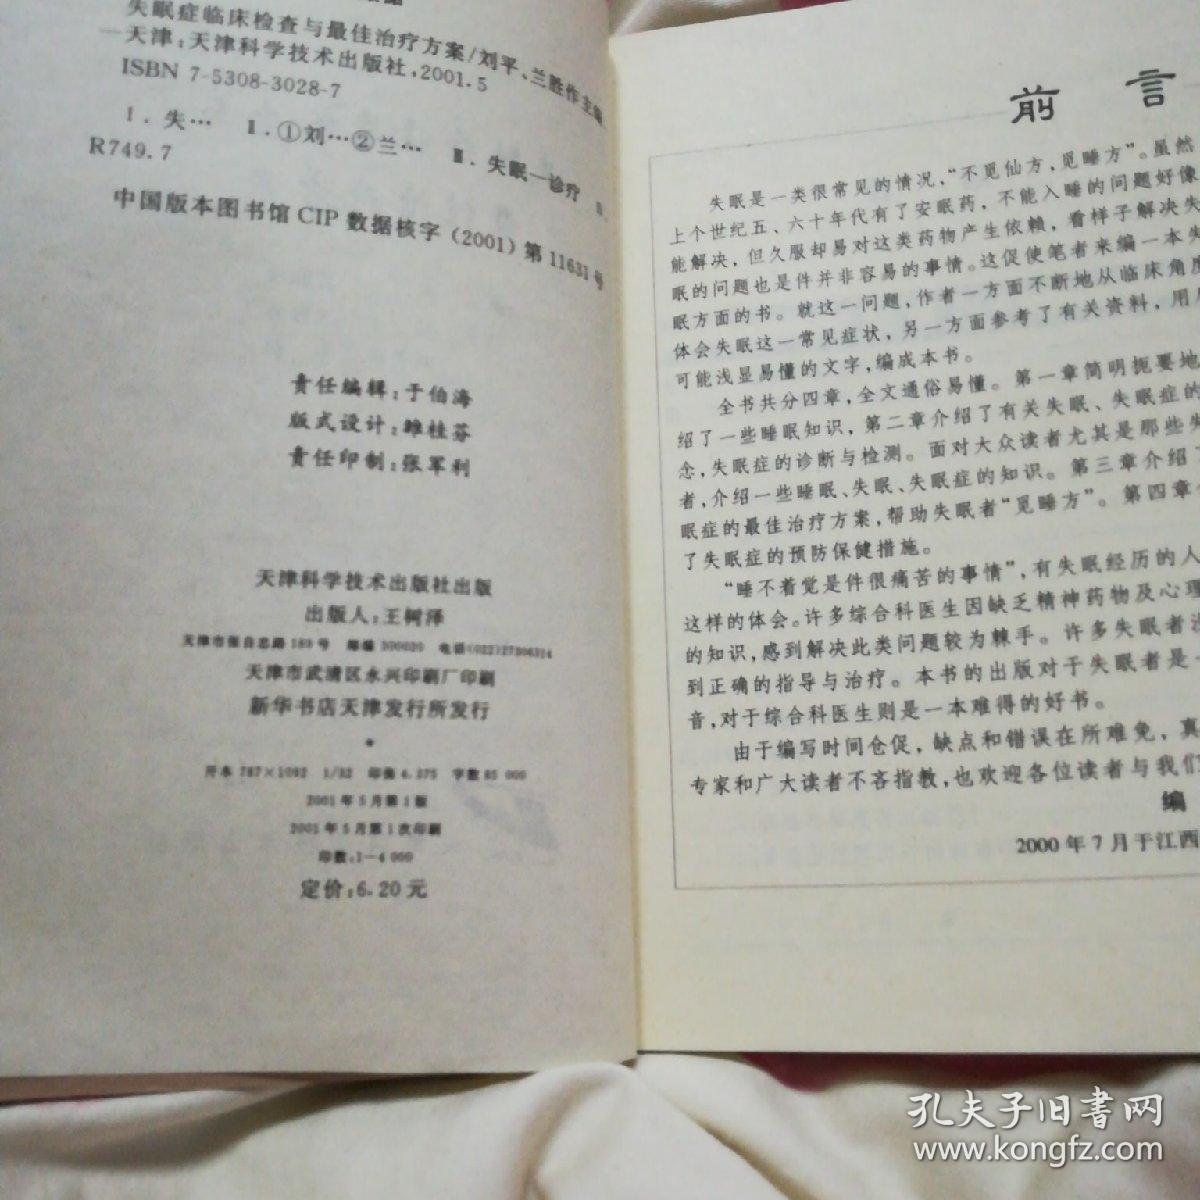 失眠症临床检查与最佳治疗方案/刘平、兰胜作主编
—天津:天津科学技术出版社,2001.5
ISBN 7-5308-3028-7
Ⅰ.失… Ⅱ.①刘…②兰… Ⅲ.失眠—诊疗
R749.7
中国版本图书馆CIP数据核字(2001)第11631号
责任编辑:于伯海
版式设计:雒桂芬
责任印制:张军利
天津科学技术出版社出版
出版人:王树泽
天津市张自忠路189号 邮编300020 电话(022)27306314
天津市武清区永兴印刷厂印刷
新华书店天津发行所发行
*
开本787×1092 1/32 印张6.375 字数85 000
2001年5月第1版
2001年5月第1次印刷
印数:1—4 000
定价:6.20元
前言
失眠是一类很常见的情况,“不觅仙方,觅睡方”。虽然
上个世纪五、六十年代有了安眠药,不能入睡的问题好像
能解决,但久服却易对这类药物产生依赖,看样子解决失
眠的问题也是件并非容易的事情。这促使笔者来编一本失
眠方面的书。就这一问题,作者一方面不断地从临床角度
体会失眠这一常见症状,另一方面参考了有关资料,用尽
可能浅显易懂的文字,编成本书。
全书共分四章,全文通俗易懂。第一章简明扼要地
绍了一些睡眠知识,第二章介绍了有关失眠、失眠症的
念,失眠症的诊断与检测。面对大众读者尤其是那些失
者,介绍一些睡眠、失眠、失眠症的知识。第三章介绍了
眠症的最佳治疗方案,帮助失眠者“觅睡方”。第四章介
了失眠症的预防保健措施。
“睡不着觉是件很痛苦的事情”,有失眠经历的人
这样的体会。许多综合科医生因缺乏精神药物及心理
的知识,感到解决此类问题较为棘手。许多失眠者没
到正确的指导与治疗。本书的出版对于失眠者是一
音,对于综合科医生则是一本难得的好书。
由于编写时间仓促,缺点和错误在所难免,真
专家和广大读者不吝指教,也欢迎各位读者与我们
编
2000年7月于江西
孔夫子旧书网
www.kongfz.com